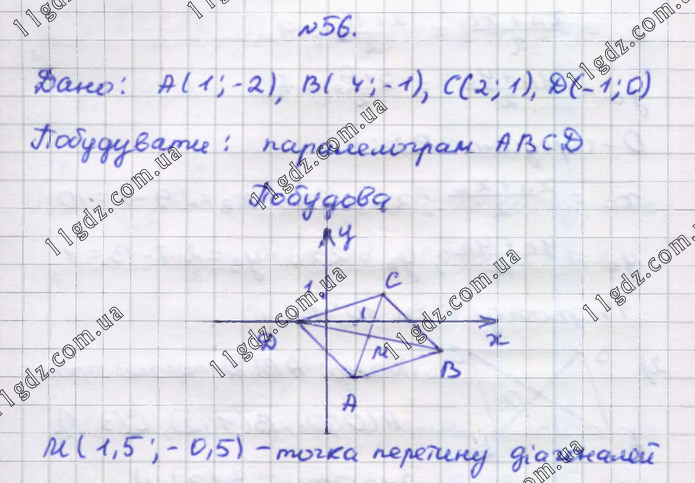 №56.
Дано: A(1;-2), B(4;-1), C(2;1), D(-1;0)
Побудувати: паралелограм ABCD
Побудова
y
1
C
1
D
x
M
B
A
M(1,5;-0,5) - точка перетину діагоналей
11gdz.com.ua
11gdz.com.ua
11gdz.com.ua
11gdz.com.ua
11gdz.com.ua
11gdz.com.ua
11gdz.com.ua
11gdz.com.ua
11gdz.com.ua
11gdz.com.ua